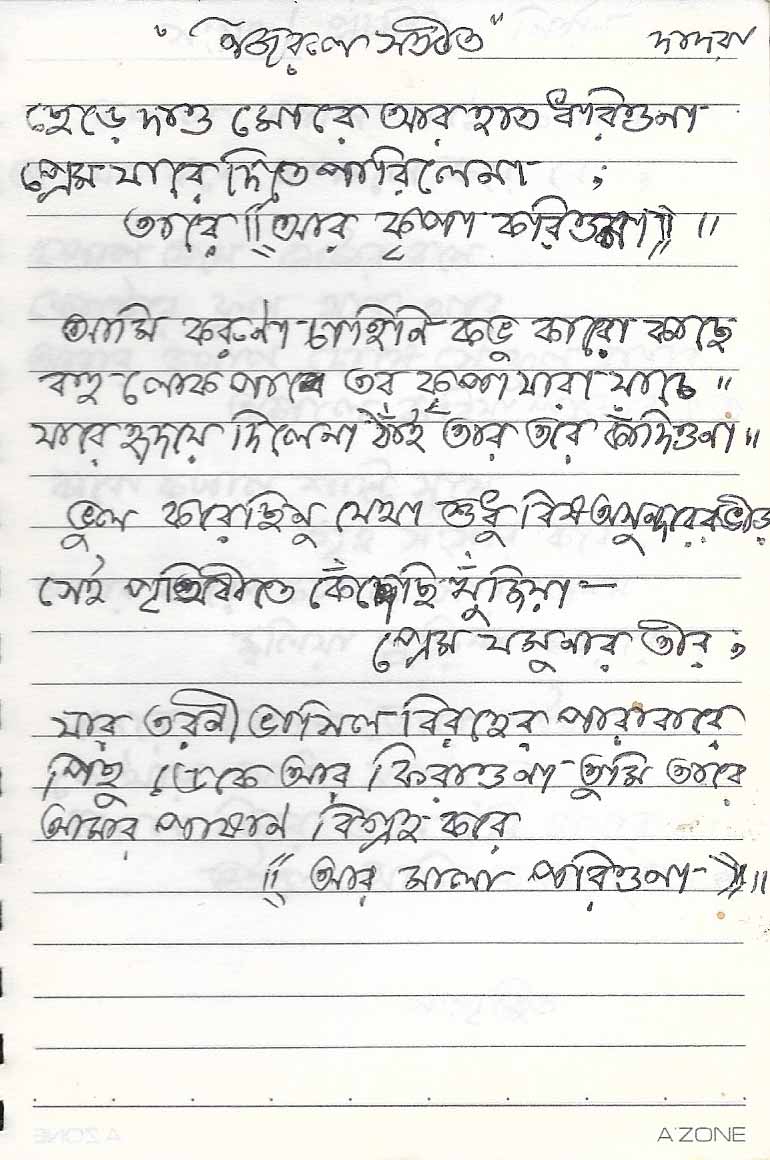 "নজরুল সঙ্গীত" দাদরা
ছেড়ে দাও মোরে আর হাত ধরিওনা
প্রেম যারে দিতে পারিলেনা ;
তারে ॥ আর কৃপা করিওনা ॥ ॥
আমি করুণা চাহিনি কভু কারো কাছে
বহু লোক পাবে তব কৃপা যারা যাচে ॥
যারে হৃদয়ে দিলেনা ঠাঁই তার তরে কাঁদিওনা ॥
ভুল করেছিনু যেথা শুধু বিষ অসুন্দরের ভীড়
সেই পৃথিবীতে কেঁদেছি খুঁজিয়া –
প্রেম যমুনার তীর ;
যার তরনী ভাসিল বিরহের পারাবারে
পিছু ডেকে আর ফিরাওনা তুমি তারে
আমারে পাষাণ বিগ্রহ করে
॥ আর মালা পরিওনা ॥ ॥
A'ZONE